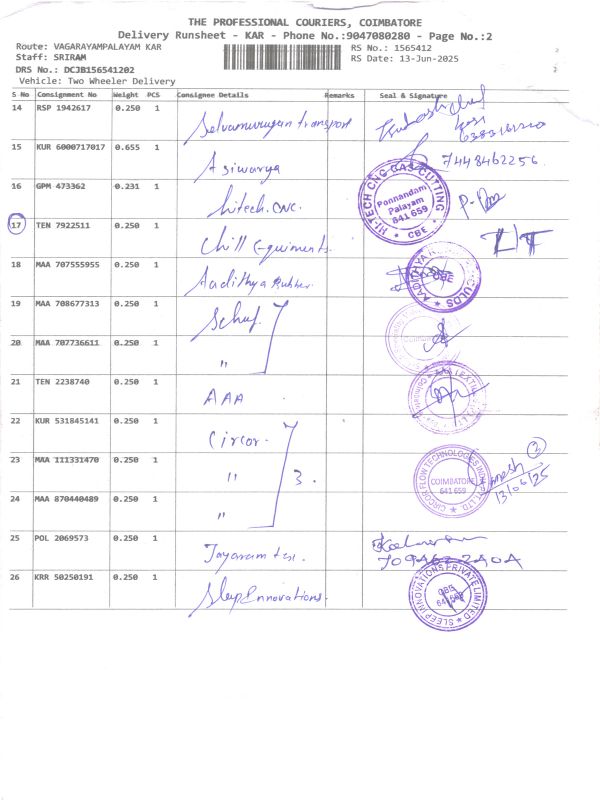 THE PROFESSIONAL COURIERS, COIMBATORE
Delivery Runsheet - KAR - Phone No.:9047080280 - Page No.:2
Route: VAGARAYAMPALAYAM KAR
RS No.: 1565412
Staff: SRIRAM
RS Date: 13-Jun-2025
DRS No.: DCJB156541202
Vehicle: Two Wheeler Delivery
S No Consignment No Weight PCS Consignee Details Remarks Seal & Signature
14 RSP 1942617 0.250 1 Selvamurugan transport
15 KUR 6000717017 0.655 1 Asiwarya 7448462256.
16 GPM 473362 0.231 1 hitech.cnc. HI-TECH CNC GAS CUTTING Ponnandam Palayam 641 659 CBE
17 TEN 7922511 0.250 1 Chill Equiments
18 MAA 707555955 0.250 1 Aadithya Rubber. CBE
19 MAA 708677313 0.250 1
20 MAA 707736611 0.250 1 "
21 TEN 2238740 0.250 1 AAA
22 KUR 531845141 0.250 1 Circor.
23 MAA 111331470 0.250 1 " 3. CIRCOR FLOW TECHNOLOGIES INDIA PVT LTD COIMBATORE 641 659 2 13/06/25
24 MAA 870440489 0.250 1 "
25 POL 2069573 0.250 1 Jayaram tex.
26 KRR 50250191 0.250 1 Sleep Ennovations. SLEEP INNOVATIONS PRIVATE LIMITED